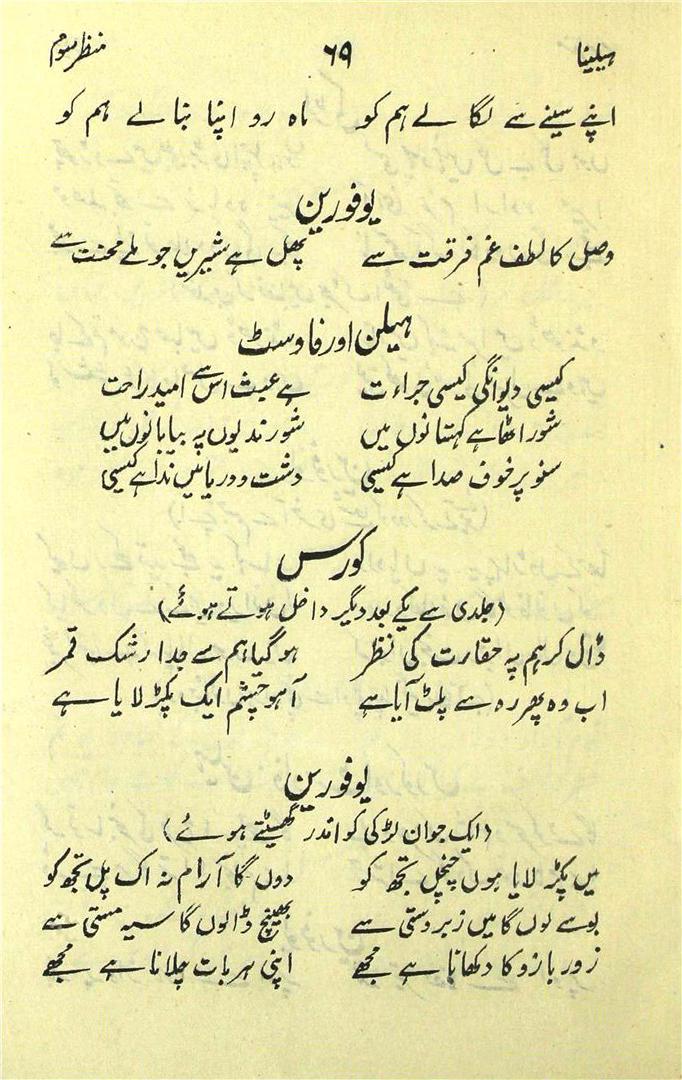 ہیلینا ۶۹ منظر سوم
اپنے سینے سے لگا لے ہم کو ماہ رو اپنا بنا لے ہم کو
یوفورین
وصل کا لطف غم فرقت سے پھل ہے شیریں جو ملے محنت سے
ہیلن اور فاوسٹ
کیسی دیوانگی کیسی جراءت ہے عبث اس سے امید راحت
شور اٹھا ہے کہستانوں میں شور ندیوں پہ بیابانوں میں
سنو پرخوف صدا ہے کیسی دشت و دریا میں ندا ہے کیسی
کورس
(جلدی سے یکے بعد دیگر داخل ہوتے ہوئے)
ڈال کر ہم پہ حقارت کی نظر ہو گیا ہم سے جدا رشک قمر
اب وہ پھر رہ سے پلٹ آیا ہے آہو چشم ایک پکڑ لایا ہے
یوفورین
(ایک جوان لڑکی کو اندر گھسیٹتے ہوئے)
میں پکڑ لایا ہوں چنچل تجھ کو دوں گا آرام نہ اک پل تجھ کو
بوسے لوں گا میں زبردستی سے بھینچ ڈالوں گا سیہ مستی سے
زور بازو کا دکھانا ہے مجھے اپنی ہر بات چلانا ہے مجھے